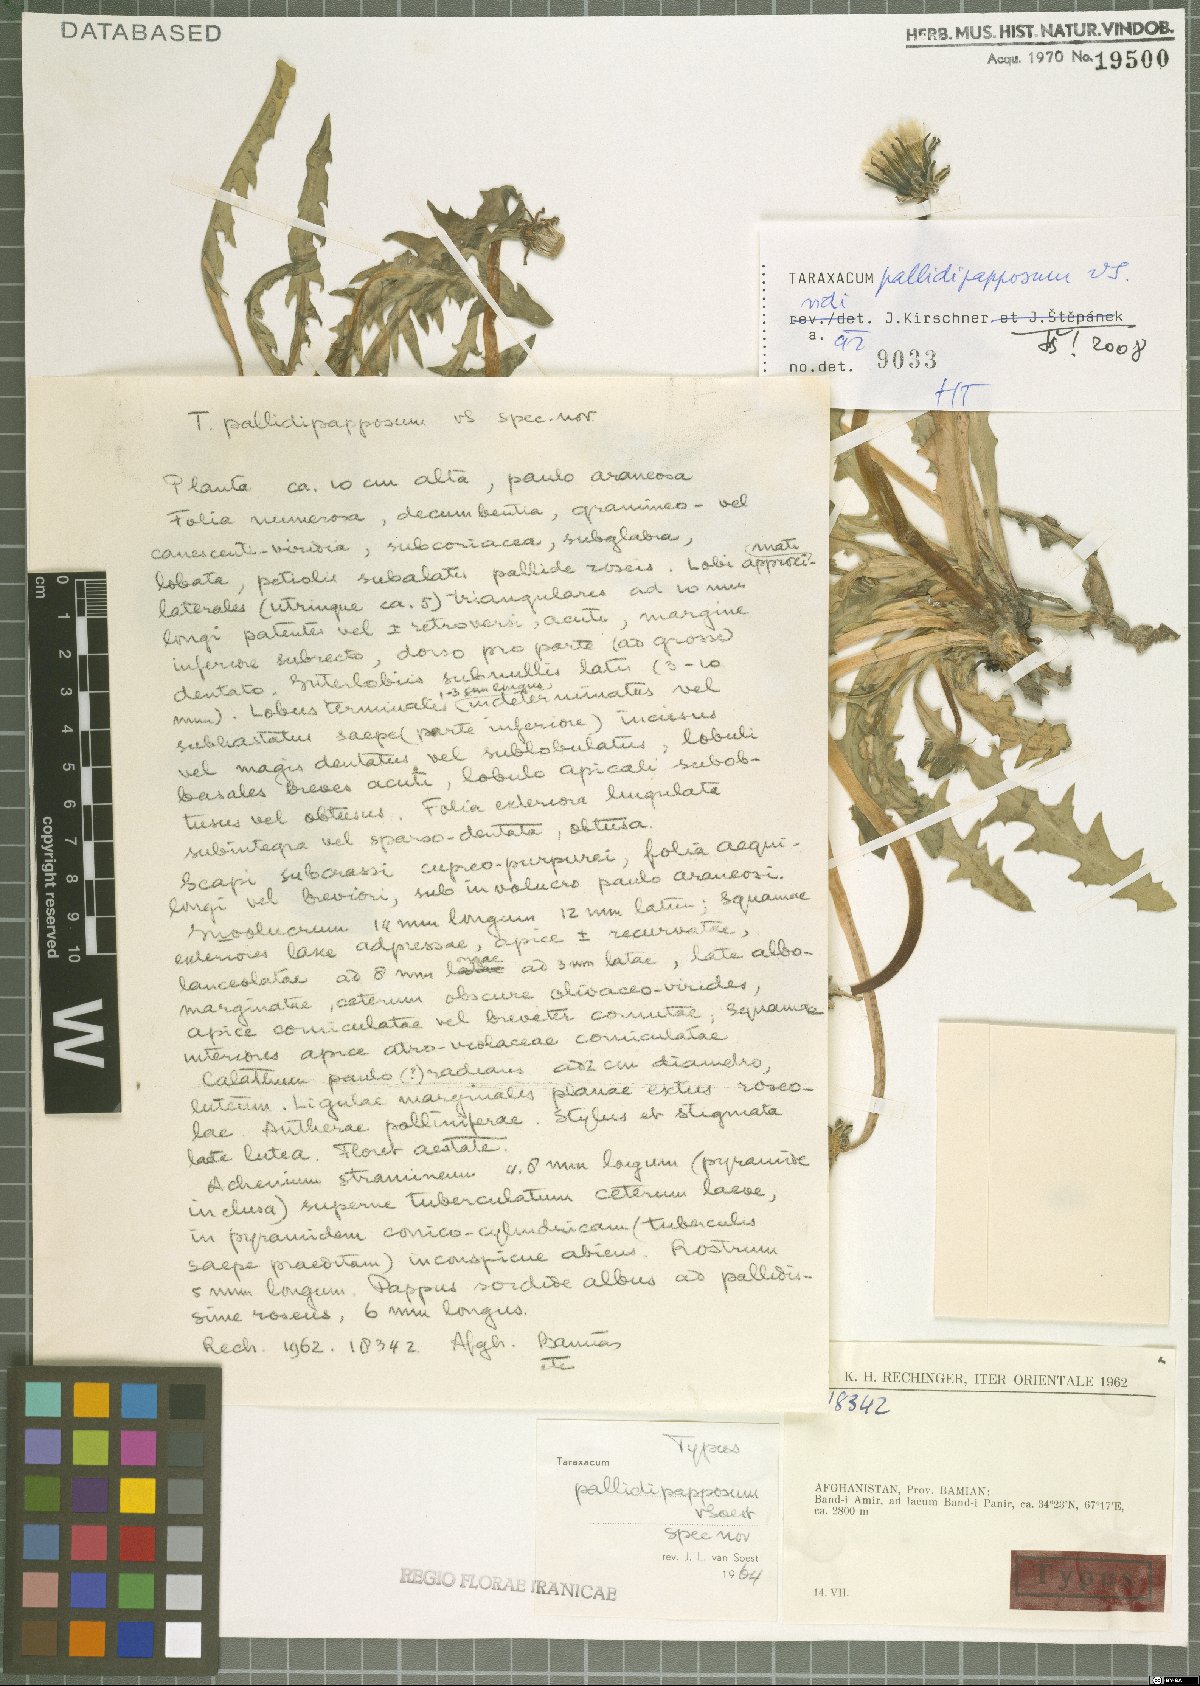 DATABASED
HERB. MUS. HIST. NATUR. VINDOB.
Acqu. 1970 No. 19500
TARAXACUM pallidipapposum vS.
vidi
rev./det. J.Kirschner et J.Štěpánek
a.
JŠ! 2008
no.det. 9033
HT
T. pallidipapposum vS spec. nov
Planta ca. 10 cm alta, paulo araneosa
Folia numerosa, decumbentia, gramineo- vel
canescenti-viridia, subcoriacea, subglabra,
lobata, petiolis subalatis pallide roseis. Lobi approxi-
mati
laterales (utrinque ca. 5) triangulares ad 10 mm
longi patentes vel ± retroversi, acuti, margine
inferiore subrecto, dorso pro parte (ad grosse)
dentato. Interlobiis subnullis latis (3-10
mm). Lobus terminalis 1-3 cm longus (indeterminatus vel
subhastatus saepe (parte inferiore) incisus
vel magis dentatus vel sublobulatus, lobuli
basales breves acuti, lobulo apicali subob-
tusus vel obtusus. Folia exteriora lingulata
subintegra vel sparso-dentata, obtusa.
Scapi subcrassi cupreo-purpurei, folia aequi-
longi vel breviori, sub involucro paulo araneosi.
Involucrum 14 mm longum 12 mm latum; squamae
exteriores laxe adpressae, apice ± recurvatae,
lanceolatae ad 8 mm longae ad 3 mm latae, late albo-
marginatae, ceterum obscure olivaceo-virides,
apice corniculatae vel breviter cornutae; squamae
interiores apice atro-violaceae corniculatae
Calathium paulo (?) radians ad 2 cm diametro,
luteum. Ligulae marginales planae extus roseo-
lae. Antherae polliniferae. Stylus et stigmata
laete lutea. Floret aestate.
Achenium stramineum 4.8 mm longum (pyramide
inclusa) superne tuberculatum ceterum laeve,
in pyramidem conico-cylindricam (tuberculis
saepe praeditam) inconspicue abiens. Rostrum
5 mm longum. Pappus sordide albus ad pallidis-
sime roseus, 6 mm longus.
Rech. 1962. 18342 Afgh. Bamian
etc
cm
0
1
2
3
4
5
6
7
8
9
10
copyright reserved
W
K. H. RECHINGER, ITER ORIENTALE 1962
18342
AFGHANISTAN, Prov. BAMIAN:
Band-i Amir, ad lacum Band-i Panir, ca. 34°23'N, 67°17'E,
ca. 2800 m
14. VII.
Typus
Typus
Taraxacum
pallidipapposum
vSoest
spec nov
rev. J. L. van Soest
1964
REGIO FLORAE IRANICAE
BY-SA